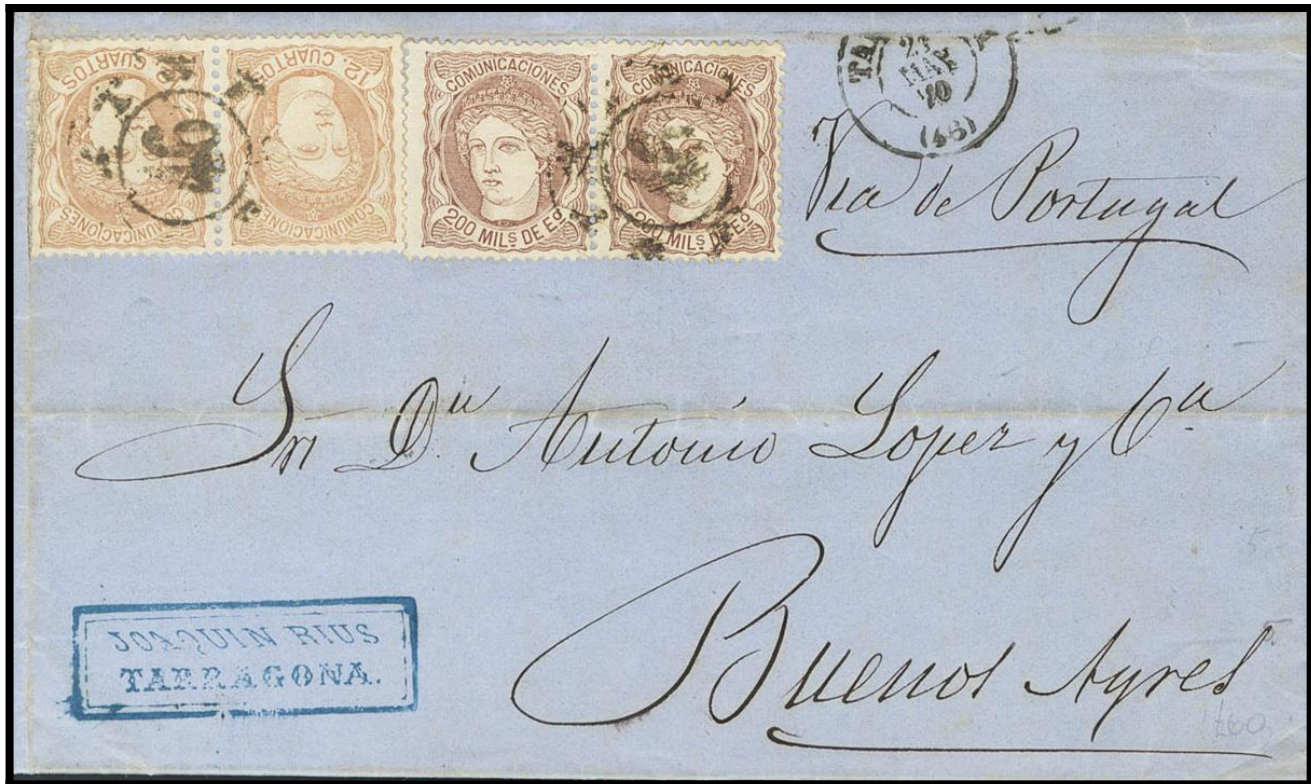 12. CUARTOS
COMUNICACIONES
CUARTOS
COMUNICACIONES
COMUNICACIONES
200 MILS DE Eo
COMUNICACIONES
200 MILS DE Eo
MAR
70
(46)
Via de Portugal
Sr Dn Antonio Lopez y Ca
Buenos Ayres
JOAQUIN RIUS
TARRAGONA.